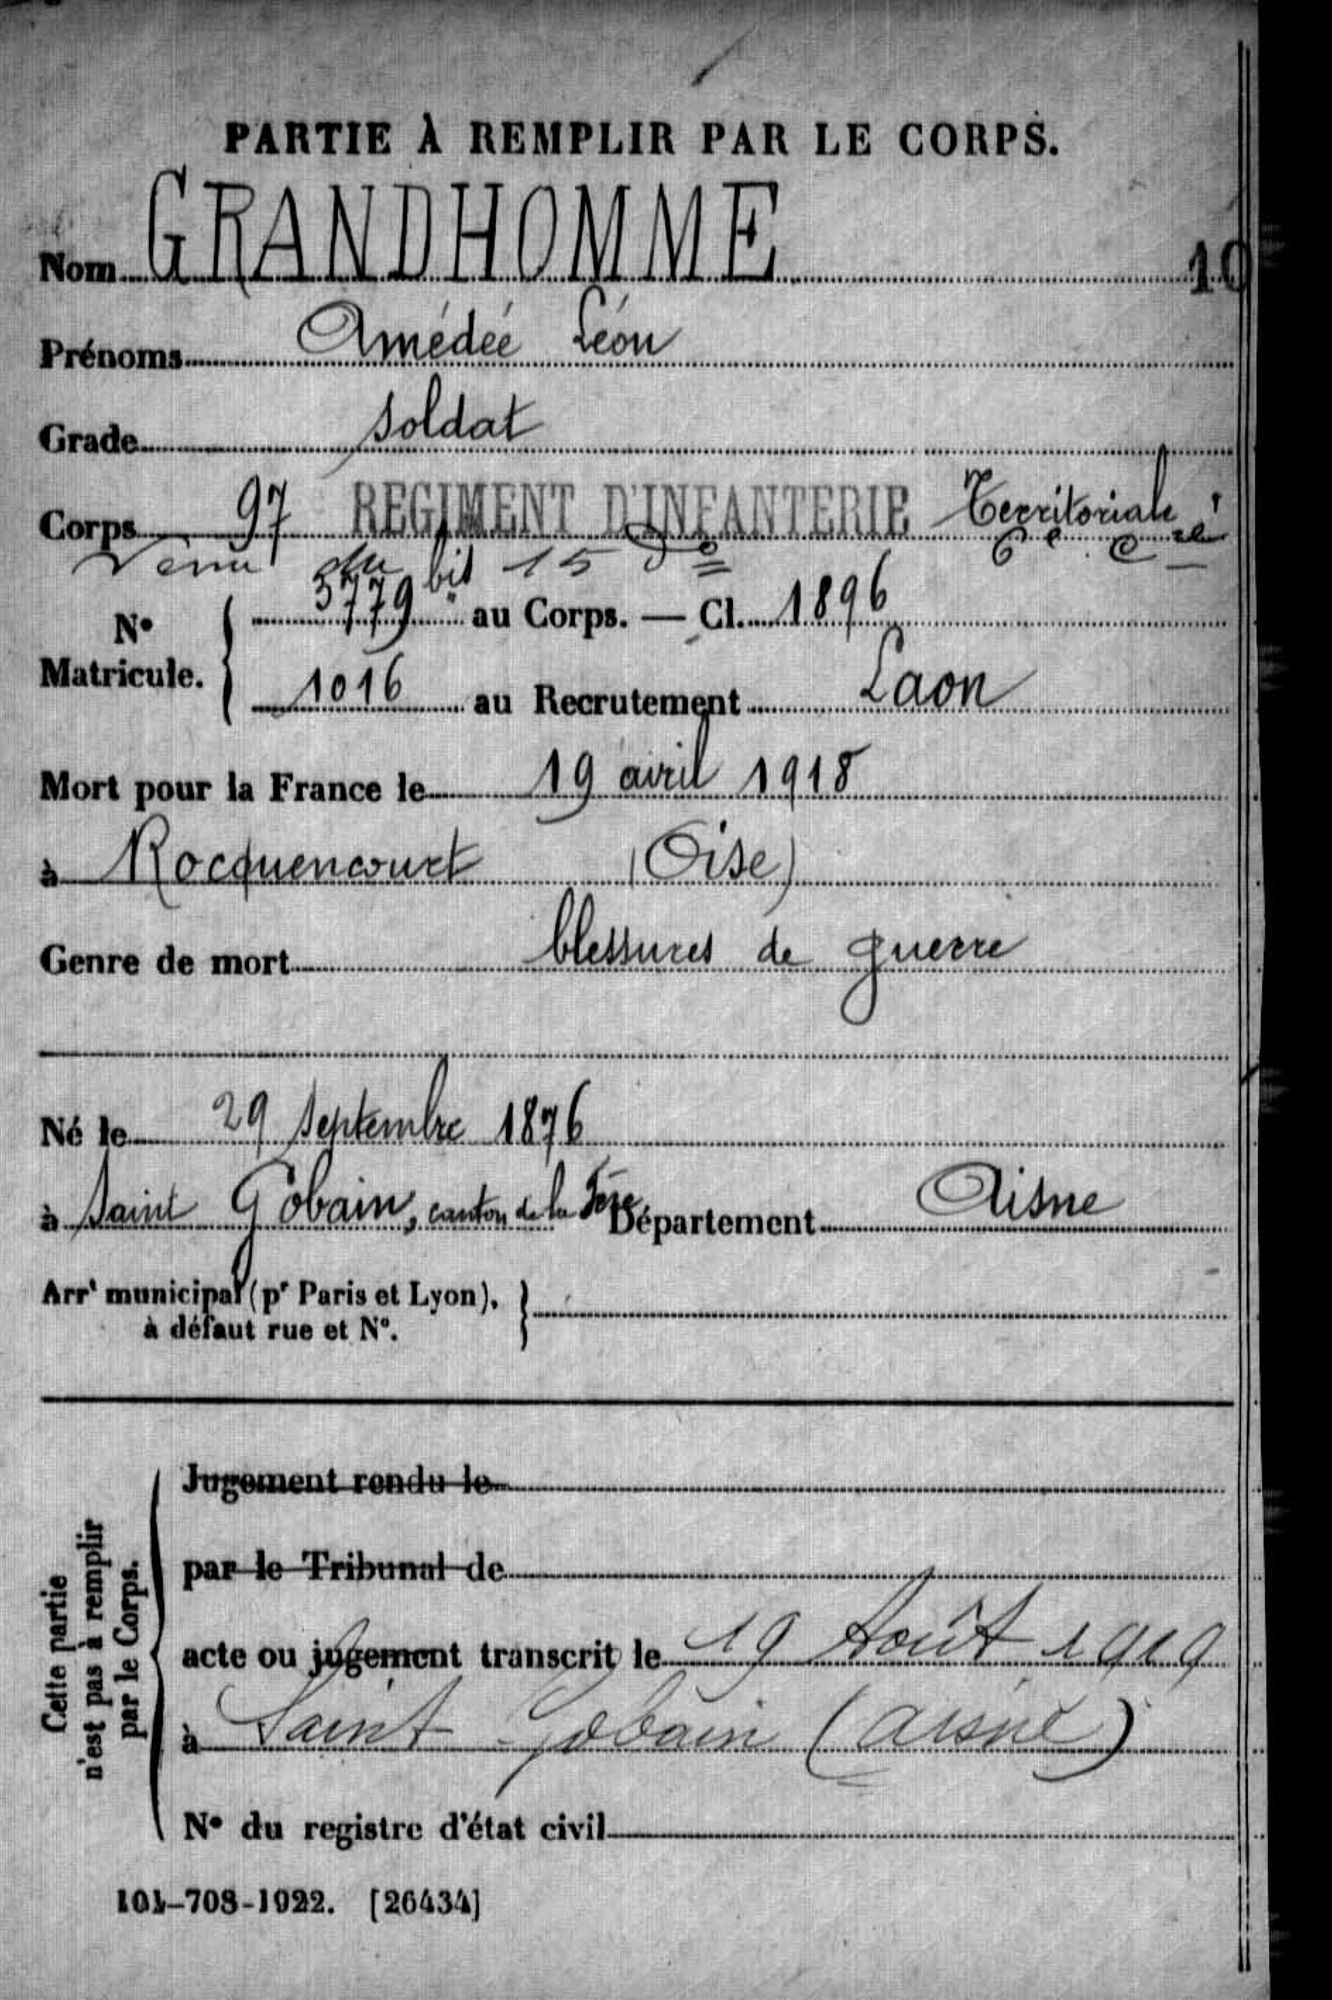 PARTIE À REMPLIR PAR LE CORPS.
Nom GRANDHOMME 10
Prénoms Amédée Léon
Grade soldat
Corps 97 REGIMENT D'INFANTERIE Territoriale
Venu du 15 d° 6e Cie
N° Matricule. 3779 bis au Corps. — Cl. 1896
1016 au Recrutement Laon
Mort pour la France le 19 avril 1918
à Rocquencourt (Oise)
Genre de mort blessures de guerre
Né le 29 septembre 1876
à Saint Gobain, canton de la Fère Département Aisne
Arrt municipal (pr Paris et Lyon),
à défaut rue et N°.
Cette partie
n'est pas à remplir
par le Corps.
Jugement rendu le
par le Tribunal de
acte ou jugement transcrit le 19 Août 1919
à Saint Gobain (Aisne)
N° du registre d'état civil
101-708-1922. [26434]